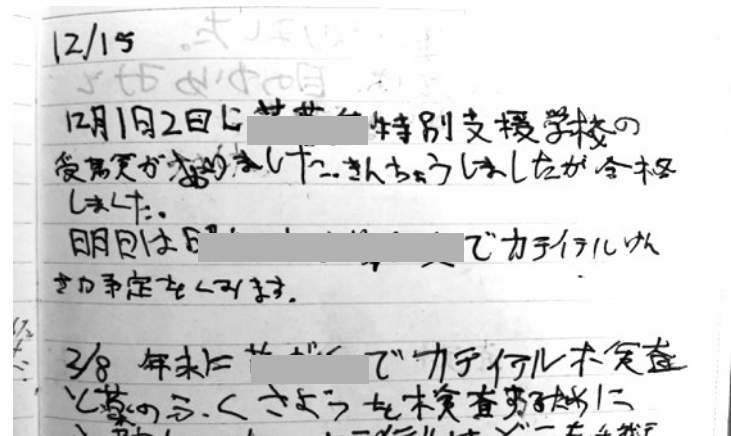 12/15
12月1日2日に 特別支援学校の
受験がありました。きんちょうしましたが合格
しました。
明日は でカテイテルけん
さの予定をくみます。
3/8 年末に でカテイテル検査
と薬のふくさようを検査するために